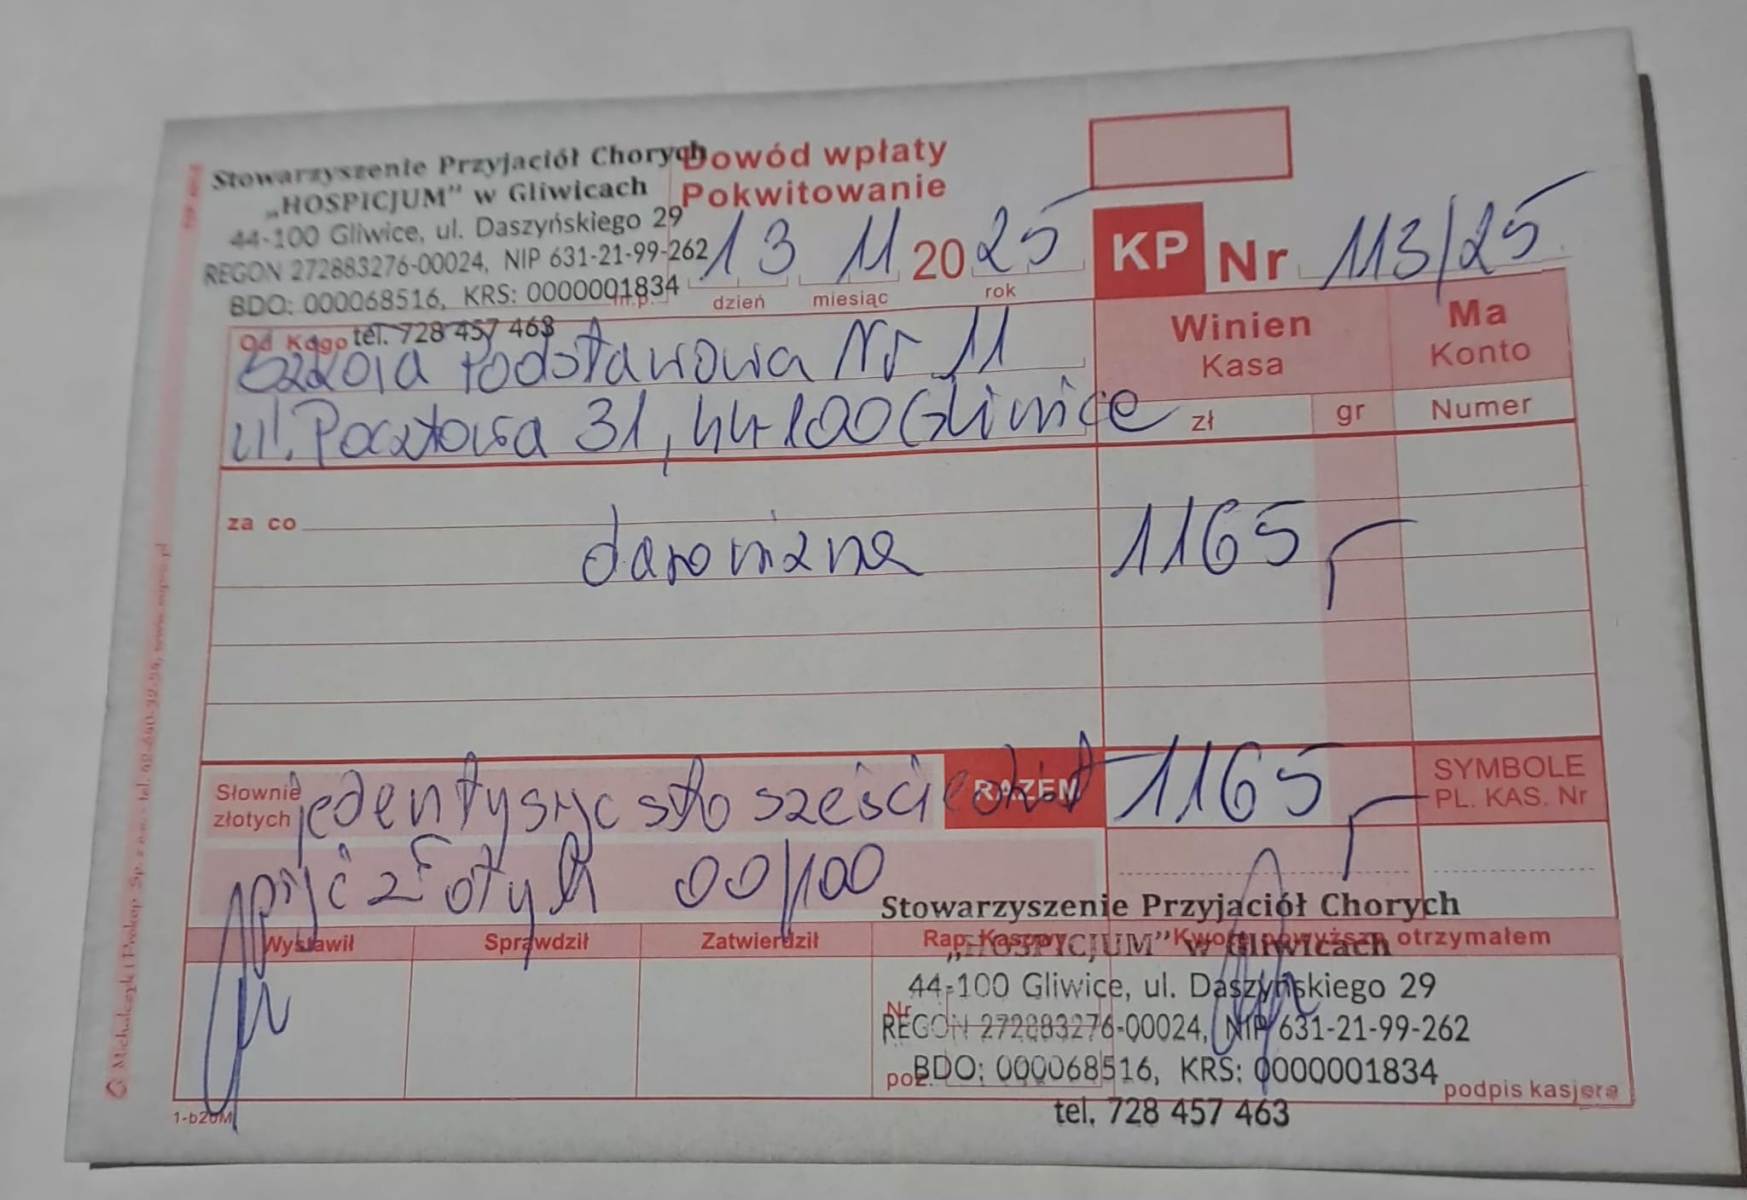 Stowarzyszenie Przyjaciół Chorych
„HOSPICJUM” w Gliwicach
44-100 Gliwice, ul. Daszyńskiego 29
REGON 272883276-00024, NIP 631-21-99-262
BDO: 000068516, KRS: 0000001834
tel. 728 457 463
Dowód wpłaty
Pokwitowanie
13 11 2025
dzień miesiąc rok
m.p.
KP Nr 113/25
Od Kogo
Szkoła Podstawowa Nr 11
ul. Pocztowa 31, 44-100 Gliwice
Winien
Kasa
Ma
Konto
zł gr Numer
za co
darowizna 1165,-
Słownie
złotych
jeden tysiąc sto sześćdziesiąt
pięć złotych 00/100
RAZEM 1165,-
SYMBOLE
PL. KAS. Nr
Wystawił Sprawdził Zatwierdził Rap. Kasowy Kwotę powyższą otrzymałem
Nr
poz.
Stowarzyszenie Przyjaciół Chorych
„HOSPICJUM” w Gliwicach
44-100 Gliwice, ul. Daszyńskiego 29
REGON 272883276-00024, NIP 631-21-99-262
BDO: 000068516, KRS: 0000001834
tel. 728 457 463
podpis kasjera
Michalczyk i Prokop Sp. z o.o.